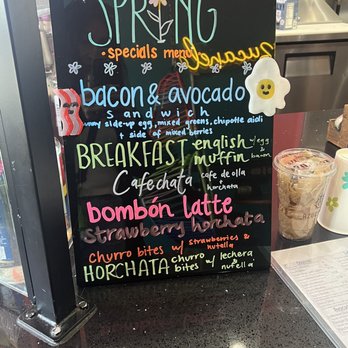 SPRING
• specials menu
bacon & avocado
sandwich
sunny side-up egg, mixed greens, chipotle aioli
+ side of mixed berries
BREAKFAST english muffin w/ egg & bacon
Cafechata cafe de olla + horchata
bombón latte
strawberry horchata
churro bites w/ strawberries & nutella
HORCHATA churro bites w/ lechera & nutella